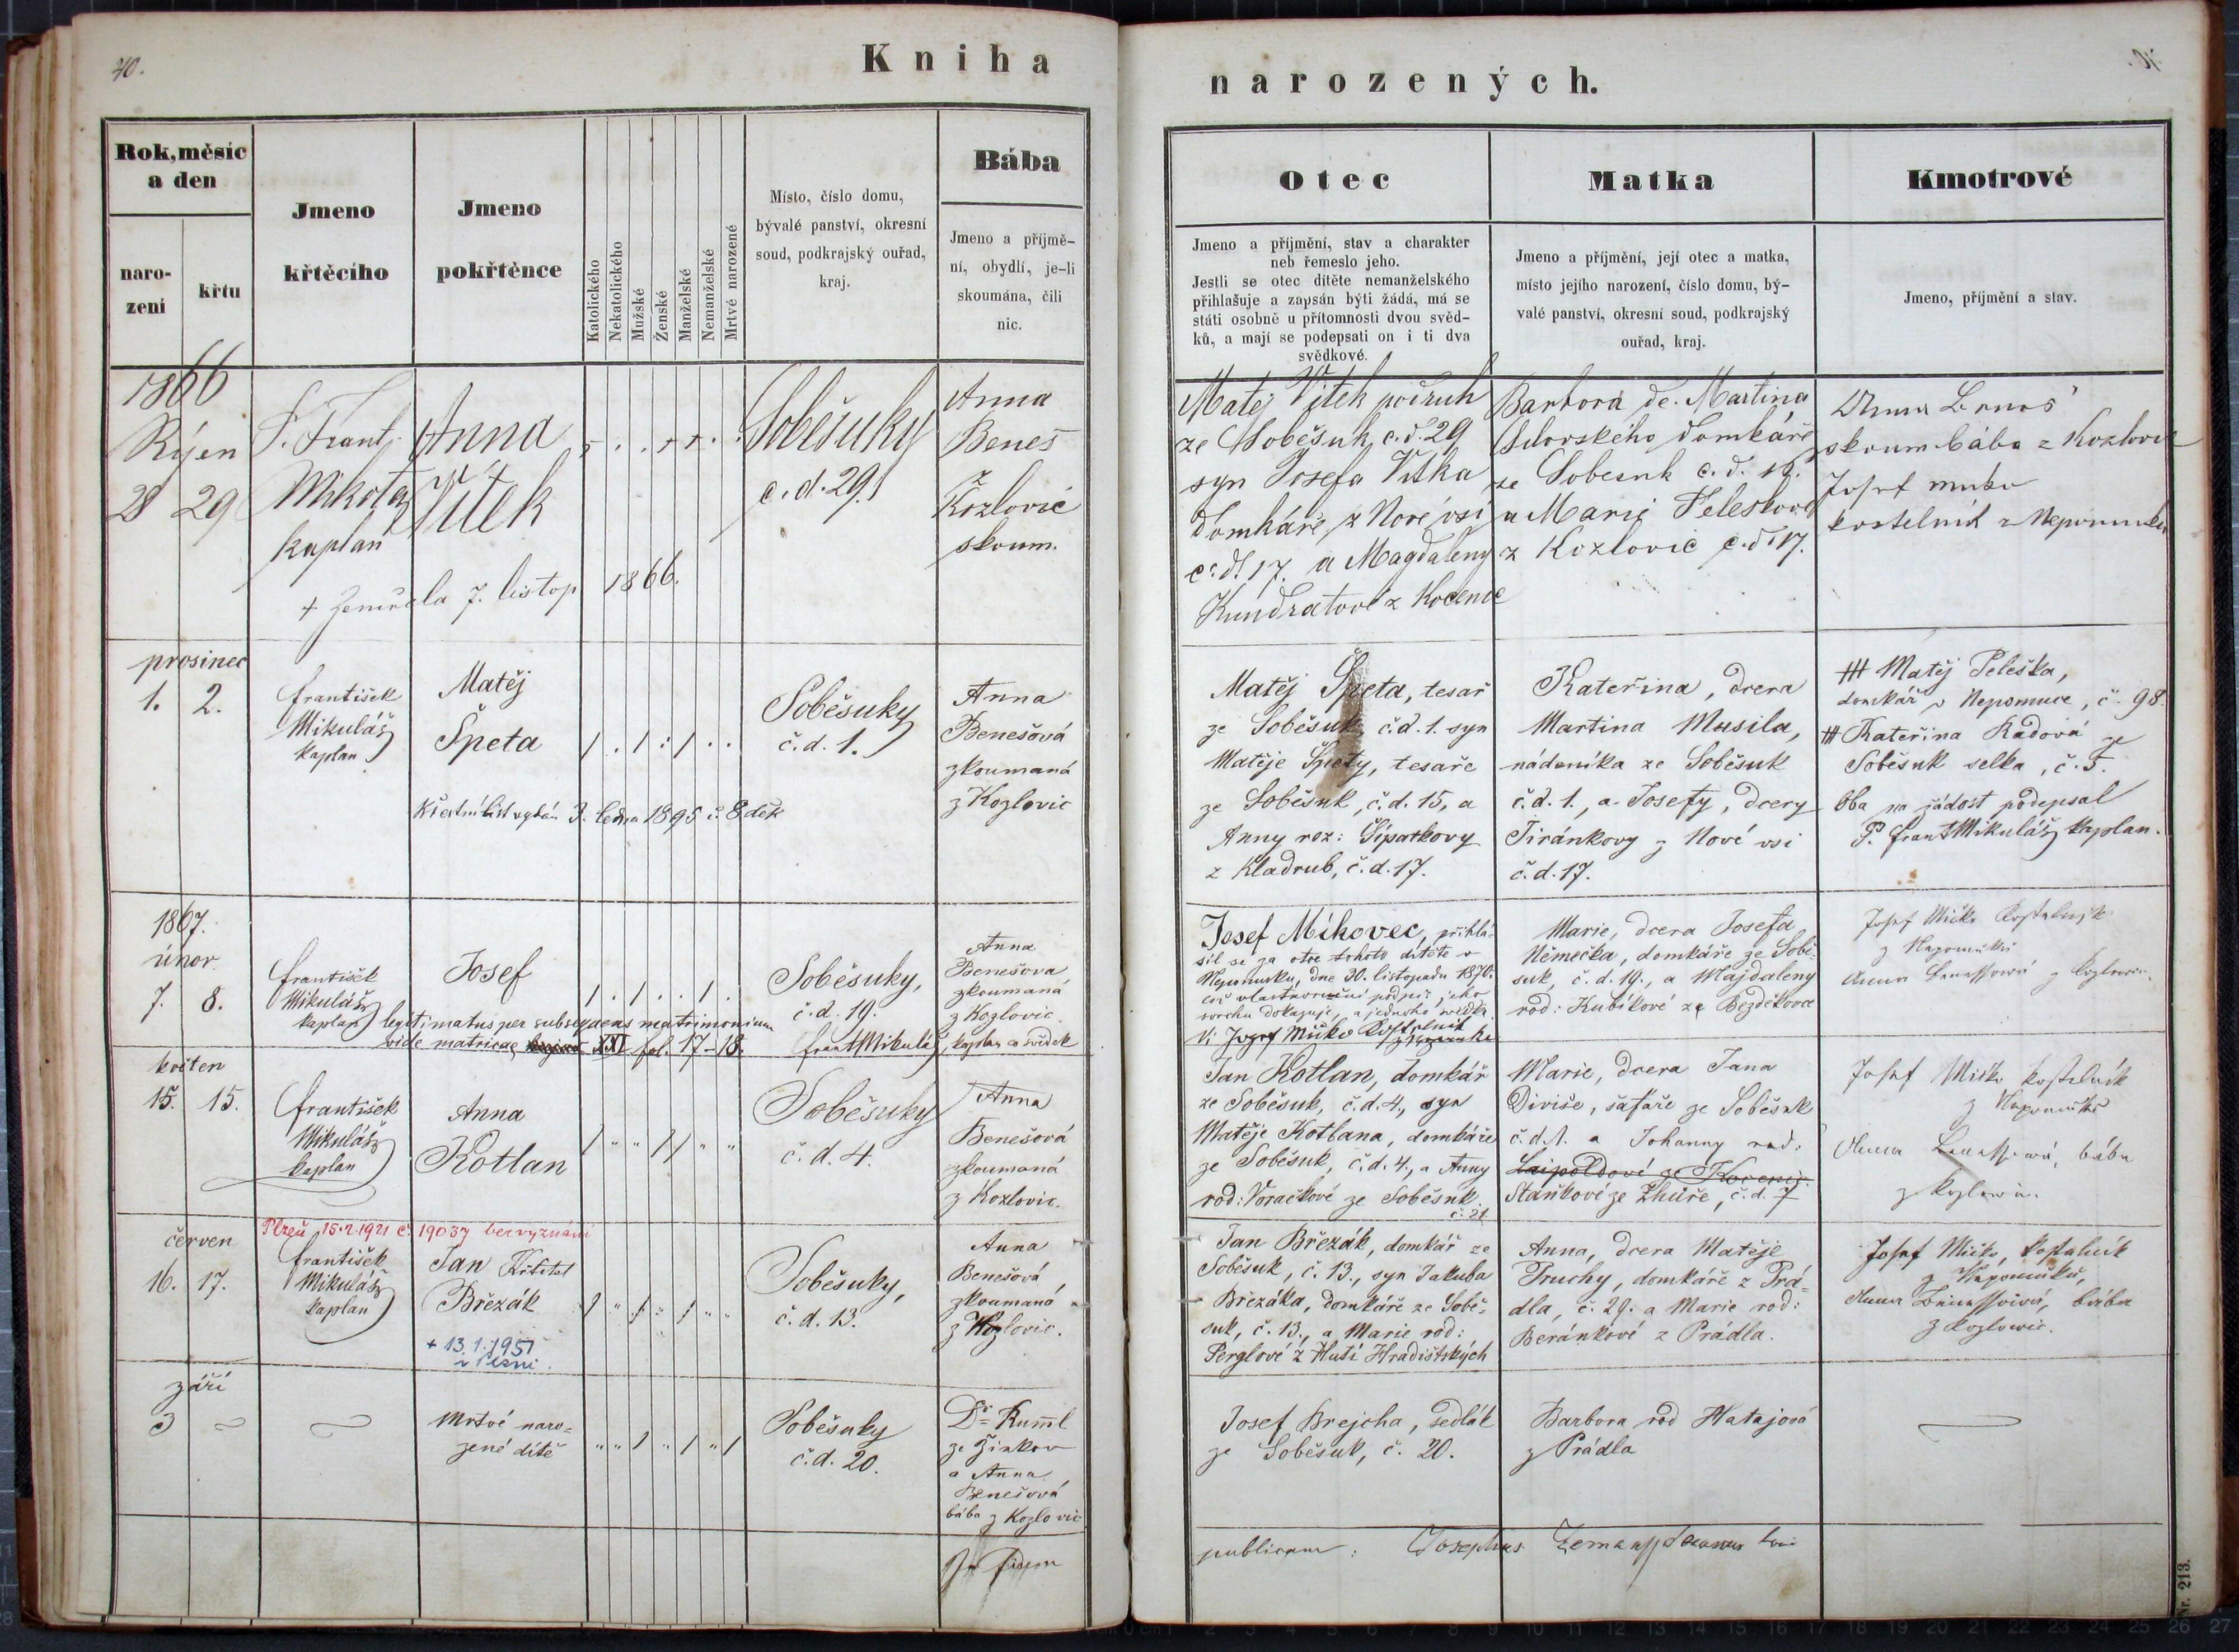 40.
Kniha
narozených.
Rok, měsíc
a den
naro-
zení
křtu
Jmeno
křtěcího
Jmeno
pokřtěnce
Katolického
Nekatolického
Mužské
Ženské
Manželské
Nemanželské
Mrtvé narozené
Místo, číslo domu,
bývalé panství, okresní
soud, podkrajský ouřad,
kraj.
Bába
Jmeno a příjmě-
ní, obydlí, je-li
skoumána, čili
nic.
Otec
Jmeno a příjmění, stav a charakter
neb řemeslo jeho.
Jestli se otec dítěte nemanželského
přihlašuje a zapsán býti žádá, má se
státi osobně u přítomnosti dvou svěd-
ků, a mají se podepsati on i ti dva
svědkové.
Matka
Jmeno a příjmění, její otec a matka,
místo jejího narození, číslo domu, bý-
valé panství, okresní soud, podkrajský
ouřad, kraj.
Kmotrové
Jmeno, příjmění a stav.
1866
Říjen
28 29
P. Frant.
Mikoláš
kaplan
Anna
Vítek
+ Zemřela 7. listop 1866.
Soběsuky
č. d. 29.
Anna
Beneš
z
Kozlovic
skoum.
Matěj Vítek podruh
ze Soběsuk, č. d. 29
syn Josefa Vítka
domkáře, z Nové vsi
č. d. 17. a Magdaleny
Kundratové z
Barbora dc. Martina
domkáře
ze Soběsuk č. d. 19.
a Marie Peleškové
z Kozlovic č. d. 17.
Anna Beneš
skoum bába z Kozlovic
Josef
kostelník z Nepomuka
prosinec
1. 2.
František
Mikuláš
kaplan
Matěj
Špeta
Křestní list vydán 3. ledna 1895 č. 8 děk
Soběsuky
č. d. 1.
Anna
Benešová
zkoumaná
z Kozlovic
Matěj Špeta, tesař
ze Soběsuk, č. d. 1. syn
Matěje Špety, tesaře
ze Soběsuk, č. d. 15, a
Anny roz: Šípatkovy
z Kladrub, č. d. 17.
Kateřina, dcera
Martina Musila,
nádeníka ze Soběsuk
č. d. 1., a Josefy, dcery
Jiránkovy z Nové vsi
č. d. 17.
+++ Matěj Peleška,
domkář v Nepomuce, č. 98.
+++ Kateřina Radová ze
Soběsuk selka, č. 5.
Oba na žádost podepsal
P. Frant Mikuláš kaplan.
1867.
únor
7. 8.
František
Mikuláš
kaplan
Josef
legitimatus per subsequens matrimonium
vide matricae XXI fol. 17-18.
Soběsuky,
č. d. 19.
Frant Mikuláš, kaplan a svědek
Anna
Benešova
zkoumaná
z Kozlovic
Josef Míhovec, přihlá-
sil se za otce tohoto dítěte v
Nepomuku, dne 20. listopadu 1870.
což vlastnoruční podpis jeho
svrchu dokazuje, a jednoho svědka
Josef Mičko Kostelník
z Nepomuku
Marie, dcera Josefa
Němečka, domkáře ze Sobě-
suk, č. d. 19., a Majdaleny
rod: Kubíkové ze Bezděkovce
Josef Mičko Kostelnik
z Nepomuku
Anna Benešová z Kozlovic
květen
15. 15.
František
Mikuláš
kaplan
Anna
Kotlan
Soběsuky
č. d. 4.
Anna
Benešová
zkoumaná
z Kozlovic.
Jan Kotlan, domkář
ze Soběsuk, č. d. 4., syn
Matěje Kotlana, domkáře
ze Soběsuk, č. d. 4., a Anny
rod: Voračkové ze Soběsuk
č. 21.
Marie, dcera Jana
Diviše, šafáře ze Soběsuk
č. d. 1. a Johanny rod:
Laipoldové ze
Staňkové ze Zhůře, č. d. 7
Josef Mičko kostelník
z Nepomuku
Anna Benešová, bába
z Kozlovic.
Plzeň 15.2.1921 č. 19037 bez vyznání
červen
16. 17.
František
Mikuláš
kaplan
Jan Křtitel
Březák
+ 13.1.1951
v Plzni.
Soběsuky,
č. d. 13.
Anna
Benešová,
zkoumaná
z Kozlovic.
Jan Březák, domkář ze
Soběsuk, č. 13., syn Jakuba
Březáka, domkáře ze Sobě-
suk, č. 13., a Marie rod:
Perglové z Hutí Hradištských
Anna, dcera Matěje
Pruchy, domkáře z Prá-
dla, č. 29. a Marie rod:
Beránkové z Prádla.
Josef Mičko, kostelník
z Nepomuku,
Anna Benešová, bába
z Kozlovic.
září
3
Mrtvé naro-
zené dítě
Soběsuky
č. d. 20.
Dr. Kuml
ze Žinkov
a Anna
Benešová
bába z Kozlovic
Josef Brejcha, sedlák
ze Soběsuk, č. 20.
Barbora rod Hatajová
z Prádla
In fidem
publicam: Josephus Zeman
Nr. 213.